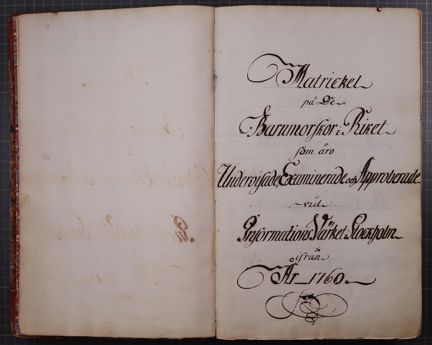 Matrickel
på De
Barnmorskor i Riket
som äro
Undervisade, Examinerade och Approberade
vid
Informations Värket i Stockholm
ifrån
År 1760.